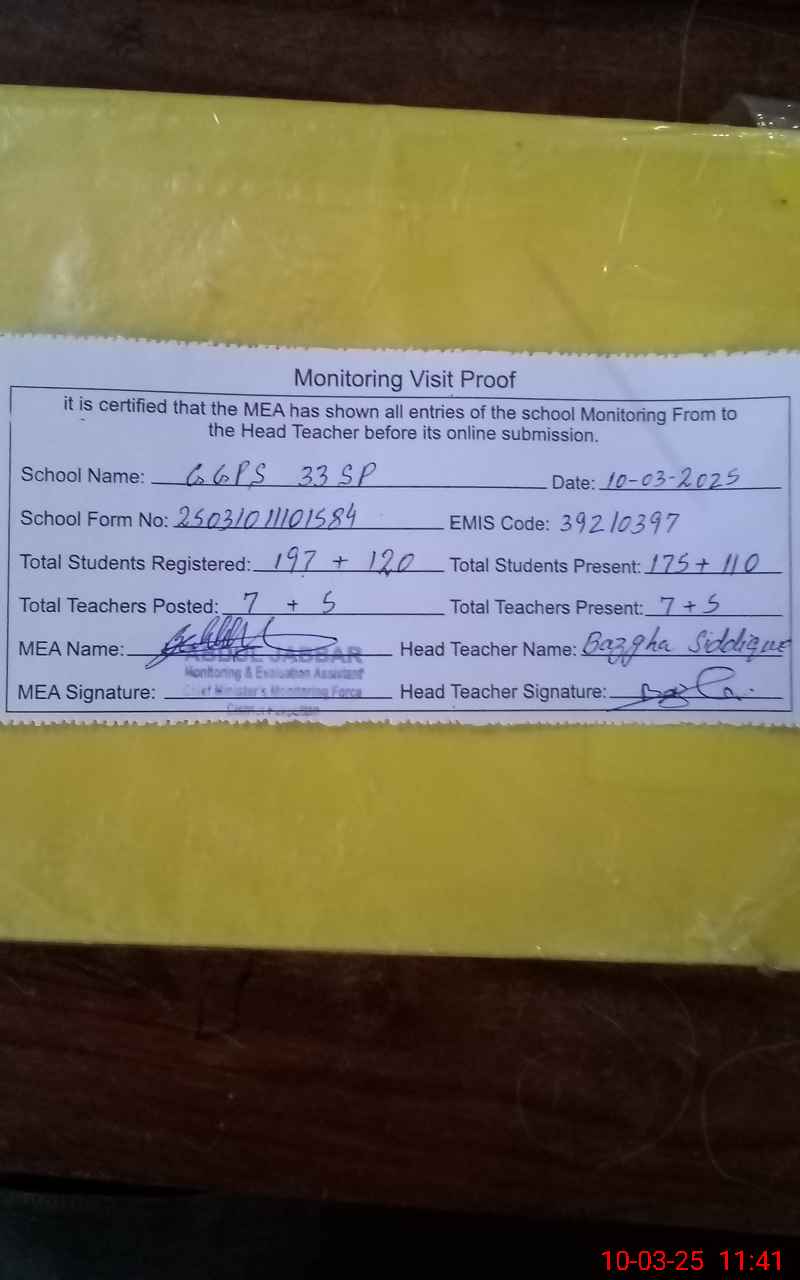 Monitoring Visit Proof
it is certified that the MEA has shown all entries of the school Monitoring From to
the Head Teacher before its online submission.
School Name: GGPS 33 SP Date: 10-03-2025
School Form No: 25031011101584 EMIS Code: 39210397
Total Students Registered: 197 + 120 Total Students Present: 175 + 110
Total Teachers Posted: 7 + 5 Total Teachers Present: 7 + 5
MEA Name: ABDUL JABBAR Head Teacher Name: Bazgha Siddique
Monitoring & Evaluation Assistant
MEA Signature: Chief Minister's Monitoring Force Head Teacher Signature:
10-03-25 11:41